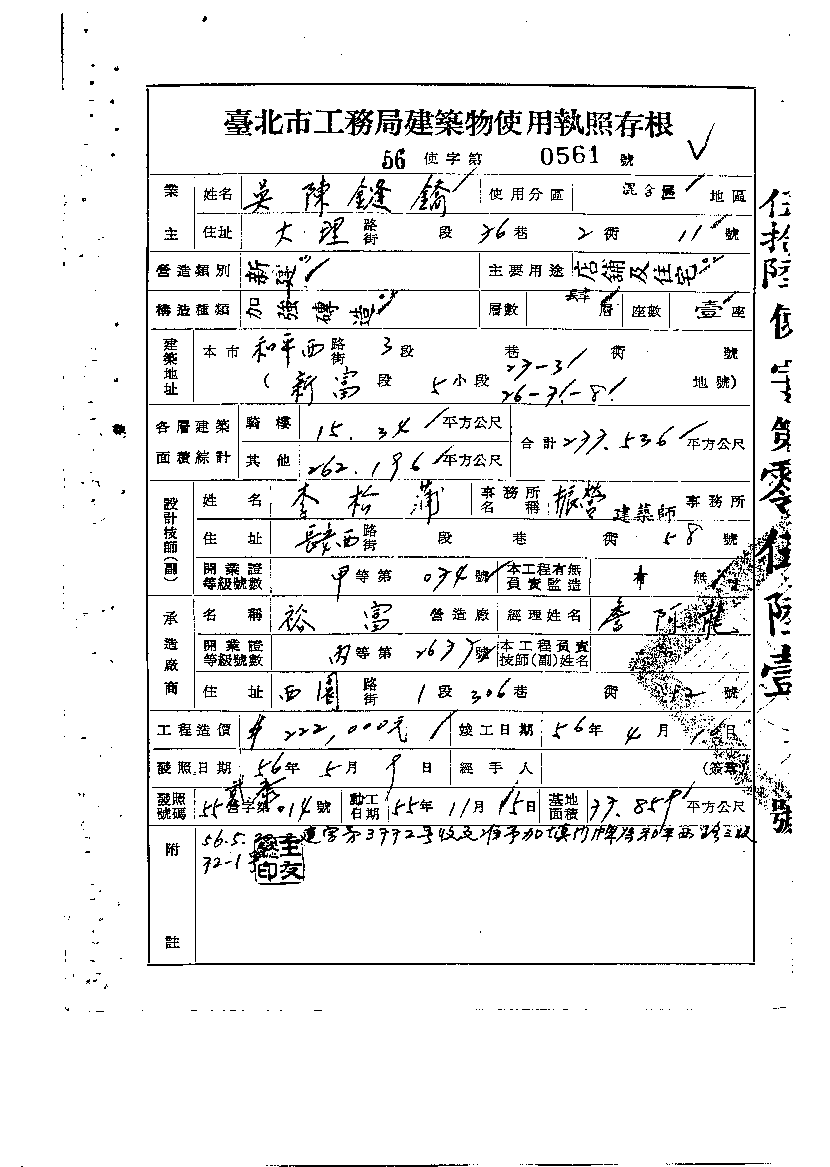 臺北市工務局建築物使用執照存根
56 使字第 0561 號
業主 姓名 吳陳鏠鑽 使用分區 混合區 地區
住址 大理 路街 段 36 巷 2 衖 11 號
營造類別 新建 主要用途 店舖及住宅
構造種類 加強磚造 層數 肆層 座數 壹座
建築地址 本市 和平西 路街 3 段 巷 衖 號
(新富段 5 小段 27-31 26-31-81 地號)
各層建築面積綜計 騎樓 15.34 平方公尺 合計 277.536 平方公尺
其他 262.196 平方公尺
設計技師(副) 姓名 李松蒲 事務所名稱 振營建築師 事務所
住址 長安西 路街 段 巷 衖 58 號
開業證等級號數 甲等第 034 號 本工程有無負責監造 有 無
承造廠商 名稱 裕富 營造廠 經理姓名 詹阿龍
開業證等級號數 丙等第 2637 號 本工程負責技師(副)姓名
住址 西園 路街 1 段 306 巷 衖 12 號
工程造價 $222,000元 竣工日期 56 年 4 月 日
發照日期 56 年 5 月 9 日 經手人 (簽章)
發照號碼 55 營字第 014 號 動工日期 55 年 11 月 15 日 基地面積 77.859 平方公尺
附註 56.5. 建字第3772號收文准予加填門牌為和平西路三段
72-1號
伍拾陸使字第零伍陸壹號